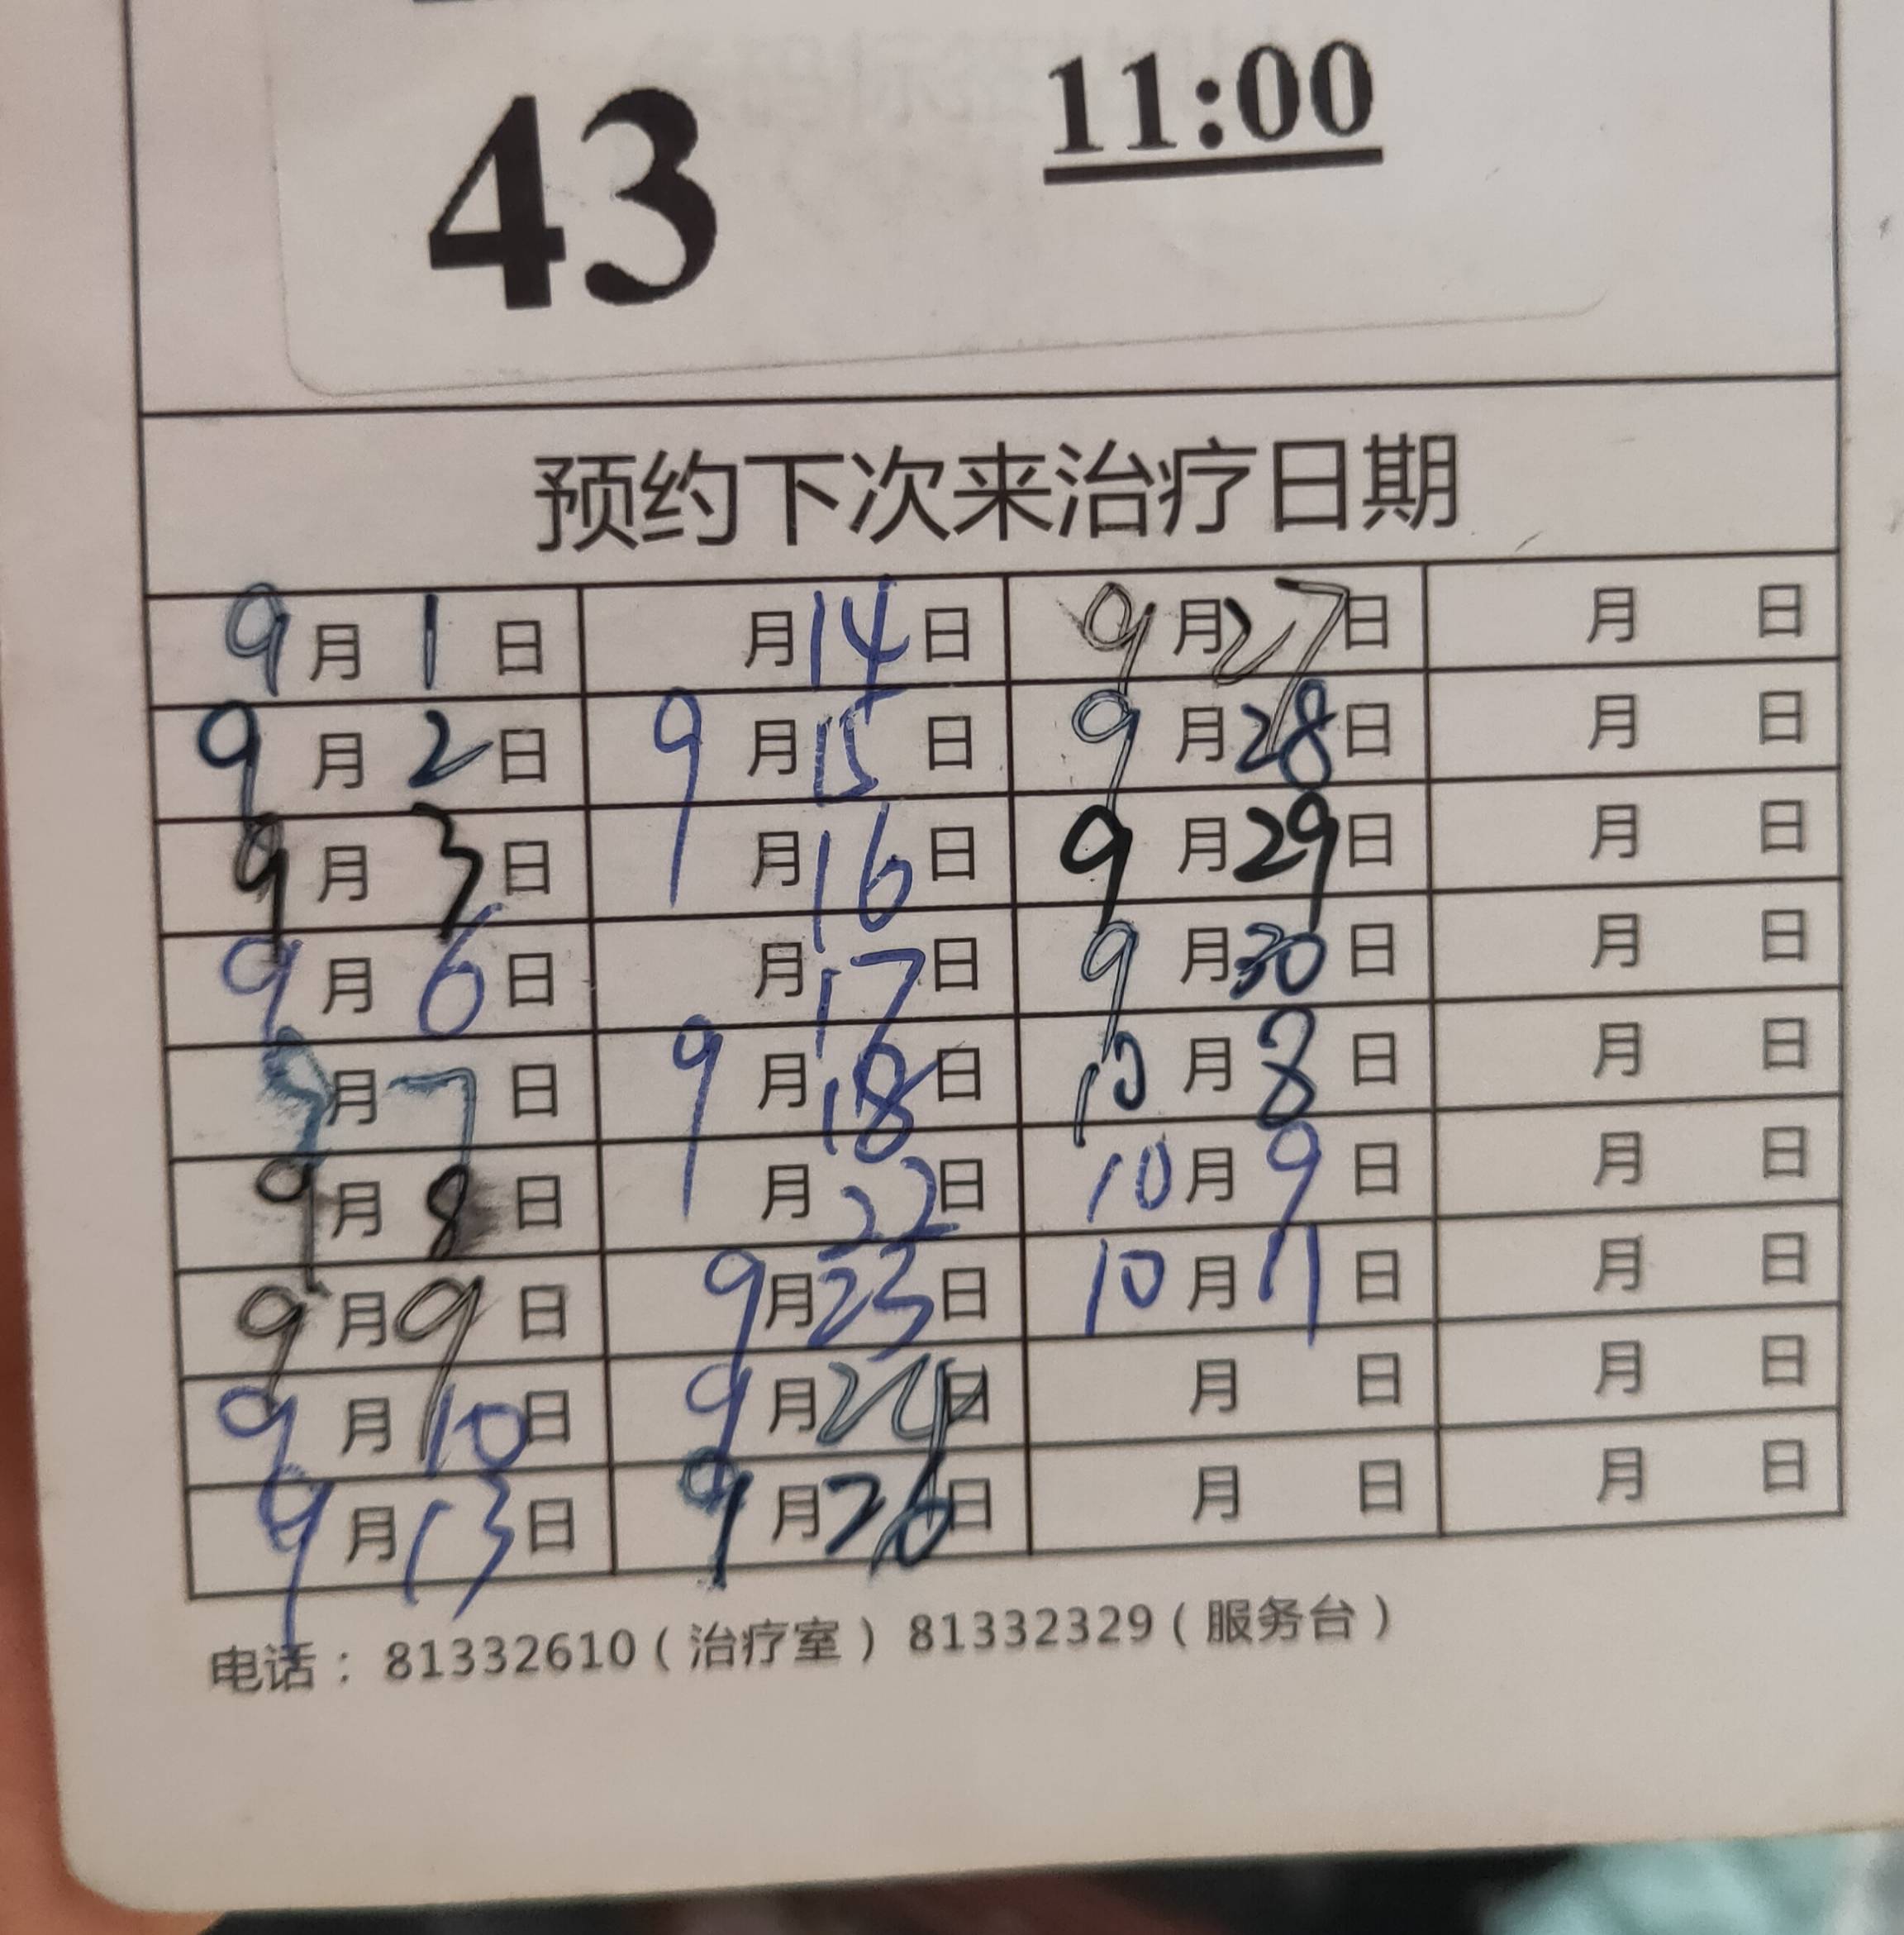 43 11:00
预约下次来治疗日期
9月1日 月14日 9月27日 月 日
9月2日 9月15日 9月28日 月 日
9月3日 月16日 9月29日 月 日
9月6日 月17日 9月30日 月 日
9月7日 9月18日 10月8日 月 日
9月8日 月22日 10月9日 月 日
9月9日 9月23日 10月11日 月 日
9月10日 9月24日 月 日 月 日
9月13日 9月26日 月 日 月 日
电话：81332610（治疗室）81332329（服务台）